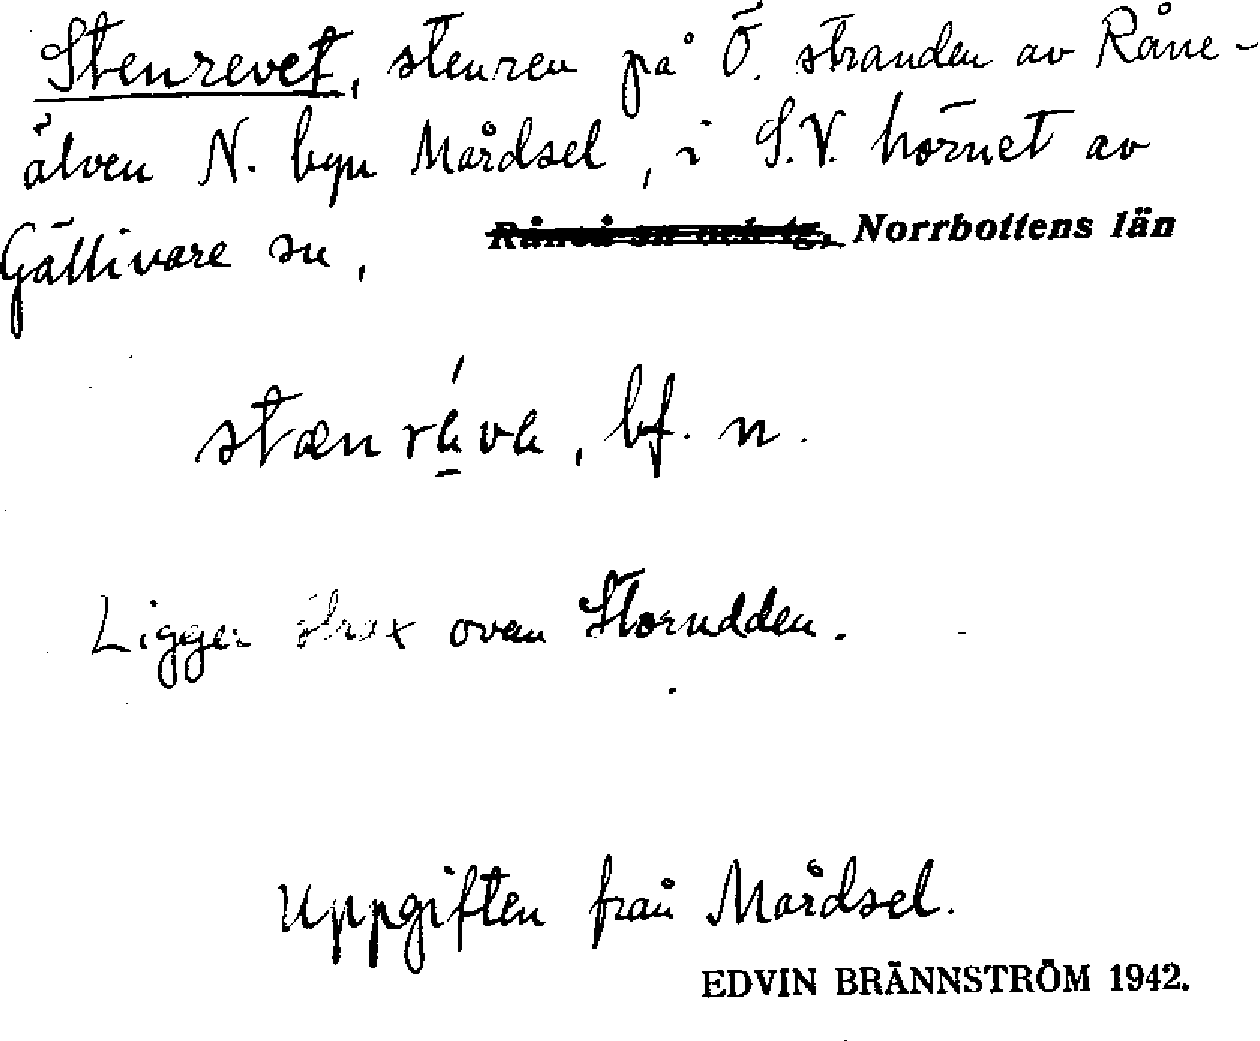 Stenrevet, stenrev på Ö. stranden av Råne-
älven N. byn Mårdsel, i S.V. hörnet av
Gällivare sn, Råneå sn och tg, Norrbottens län
bf. n.
Ligger strax ovan Storudden.
Uppgiften från Mårdsel.
EDVIN BRÄNNSTRÖM 1942.